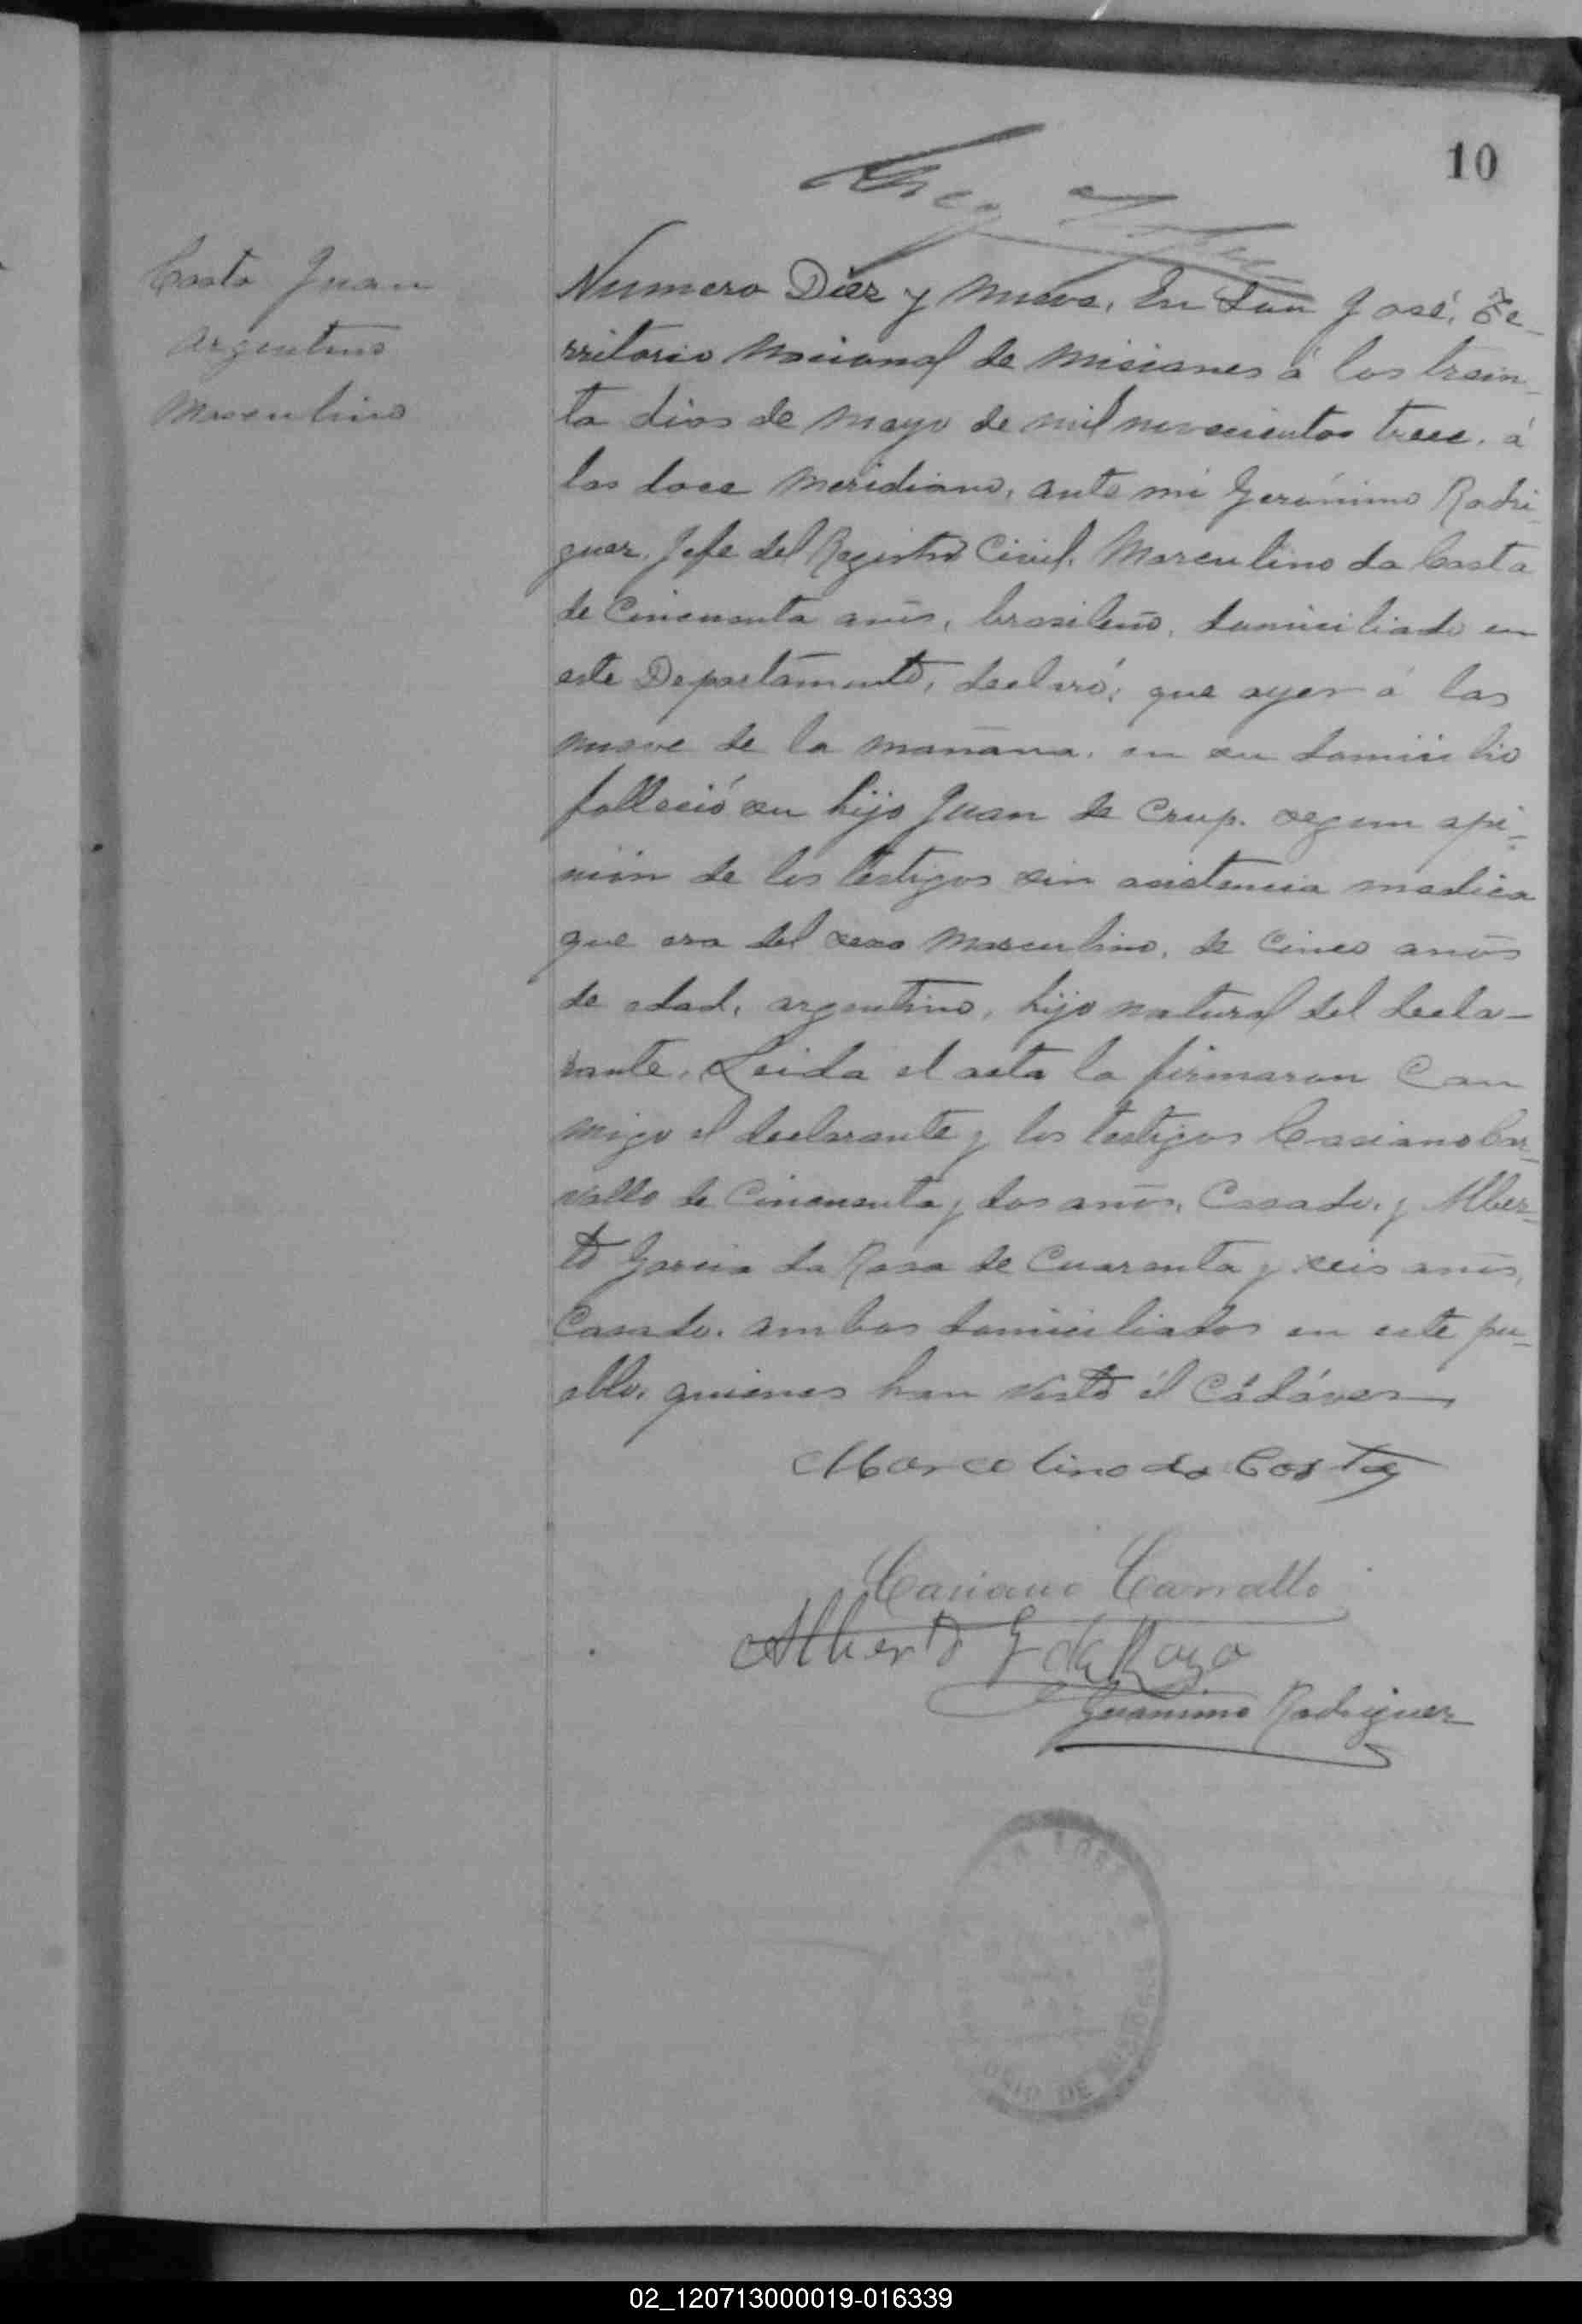 10
Costa Juan
argentino
Masculino
Numero Diez y nueve, En San José, Te-
rritorio Nacional de Misiones á los trein-
ta dias de Mayo de mil novecientos trece, á
las doce meridiano, ante mi Gerónimo Rodri-
guez, Jefe del Registro Civil, Marculino da Costa
de Cincuenta años, brasileño, domiciliado en
este Departamento, declaró; que ayer á las
nueve de la mañana, en su domicilio
falleció su hijo Juan de Crup. segun opi-
nión de los testigos sin asistencia medica
que era del sexo Masculino, de Cinco años
de edad, argentino, hijo natural del decla-
rante. Leida el acta la firmaron Con
migo el declarante y los testigos Casiano Car-
vallo de Cincuenta y dos años, Casado, y Alber-
to Garcia da Rosa de Cuarenta y seis años,
Casado, ambos domiciliados en este pu-
eblo, quienes han visto él Cádáver—
Marcolino da Costa
Casiano Carvallo
Alberto G da Roza
Geronimo Rodriguez
DE MISIONES
02_120713000019-016339